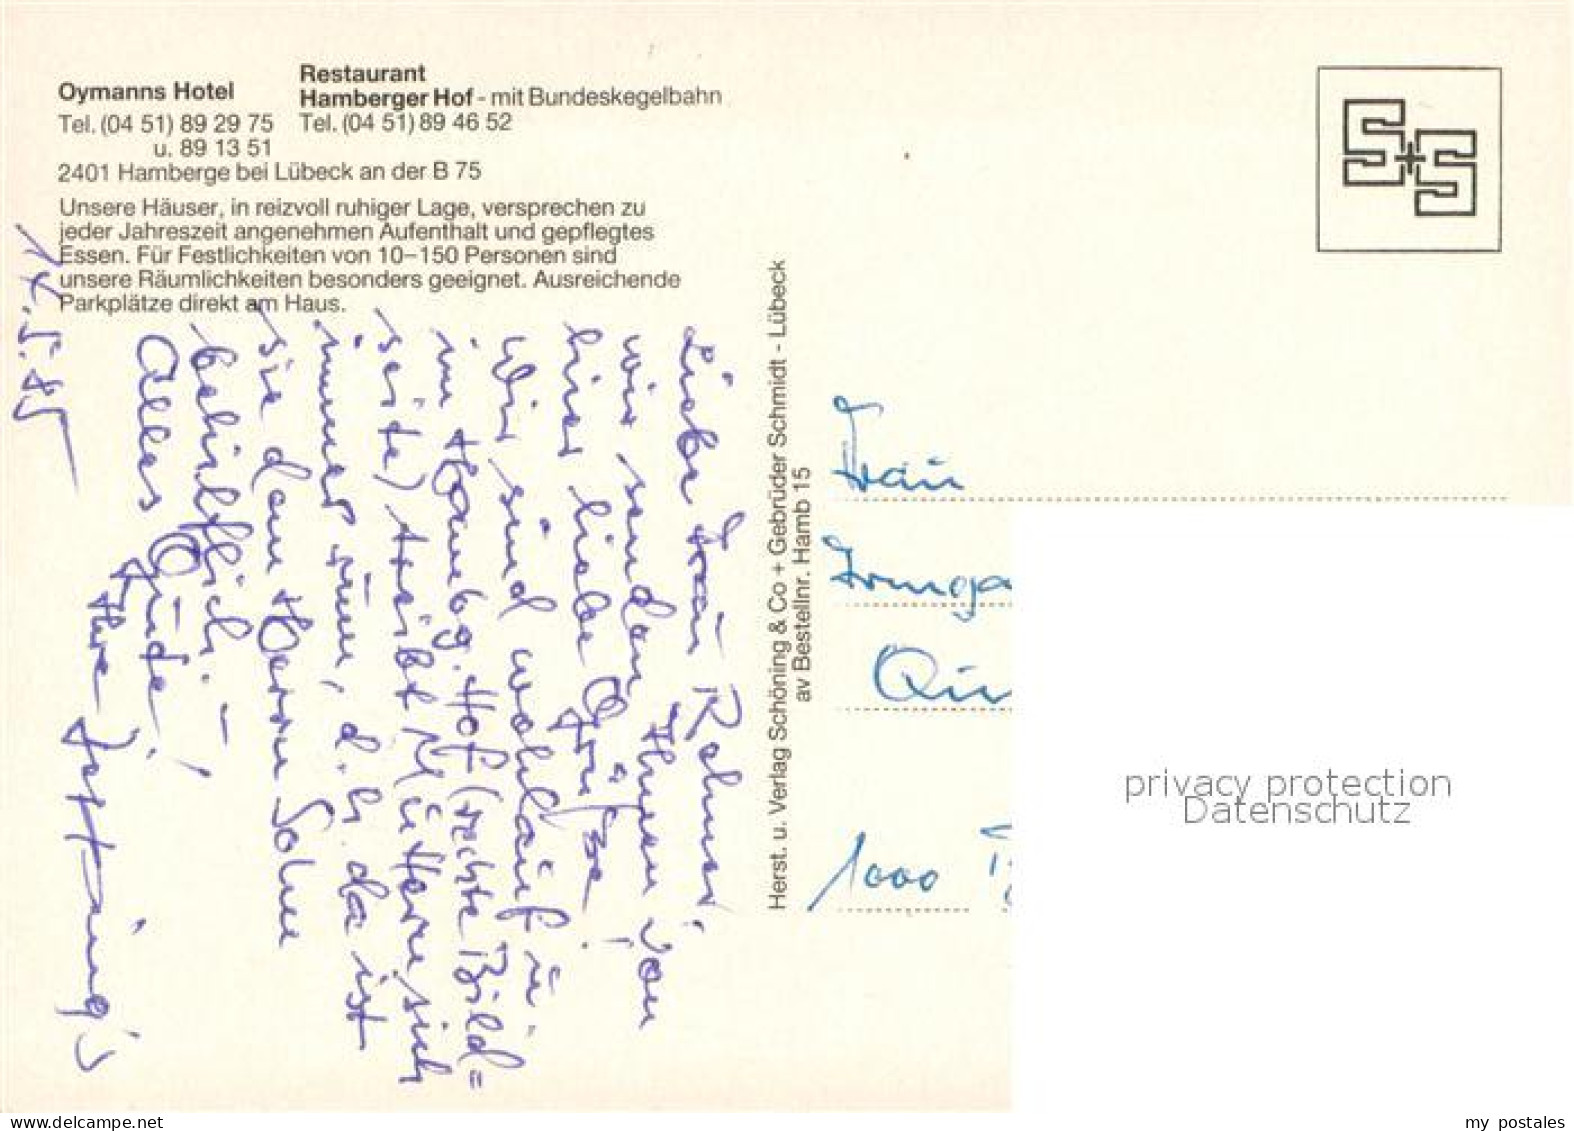 Oymanns Hotel
Tel. (04 51) 89 29 75
u. 89 13 51
Restaurant
Hamberger Hof - mit Bundeskegelbahn
Tel. (04 51) 89 46 52
2401 Hamberge bei Lübeck an der B 75
Unsere Häuser, in reizvoll ruhiger Lage, versprechen zu
jeder Jahreszeit angenehmen Aufenthalt und gepflegtes
Essen. Für Festlichkeiten von 10–150 Personen sind
unsere Räumlichkeiten besonders geeignet. Ausreichende
Parkplätze direkt am Haus.
Liebe Frau Rohmer,
wir senden Ihnen von
hier liebe Grüße!
Wir sind wohlauf u.
im Hambg. Hof (rechte Bild=
seite) treibt Muttern sich
immer rum, d. h. da ist
sie dem Herrn Sohn
behilflich. –
Alles Gute!
Ihre
S+S
Herst. u. Verlag Schöning & Co + Gebrüder Schmidt - Lübeck
av Bestellnr. Hamb 15
Frau
Irmga
1000
privacy protection
Datenschutz
www.delcampe.net
my_postales